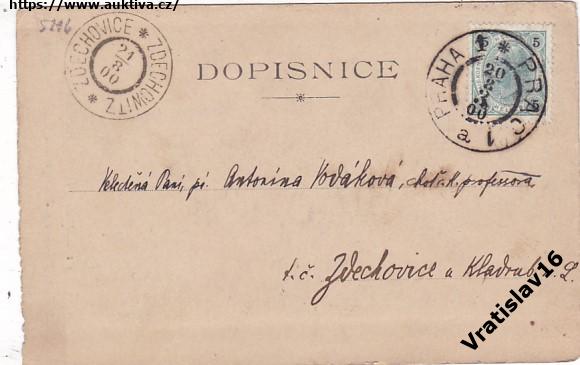 https://www.auktiva.cz/
5226
* ZDECHOVICE * ZDECHOWITZ
21
8
00
DOPISNICE
5 5
PRAHA 1 * PRAG 1
20
8
00
a
Velectěná Paní, pí. Antonína Vodáková, choť c.k. professora
t.č. Zdechovice u Kladrub n. L.
Vratislav16